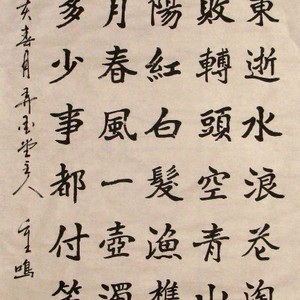 東逝水浪花淘
敗轉頭空青山
陽紅白髮漁樵
月春風一壺濁
多少事都付笑
亥春月弄墨堂主人 重鳴